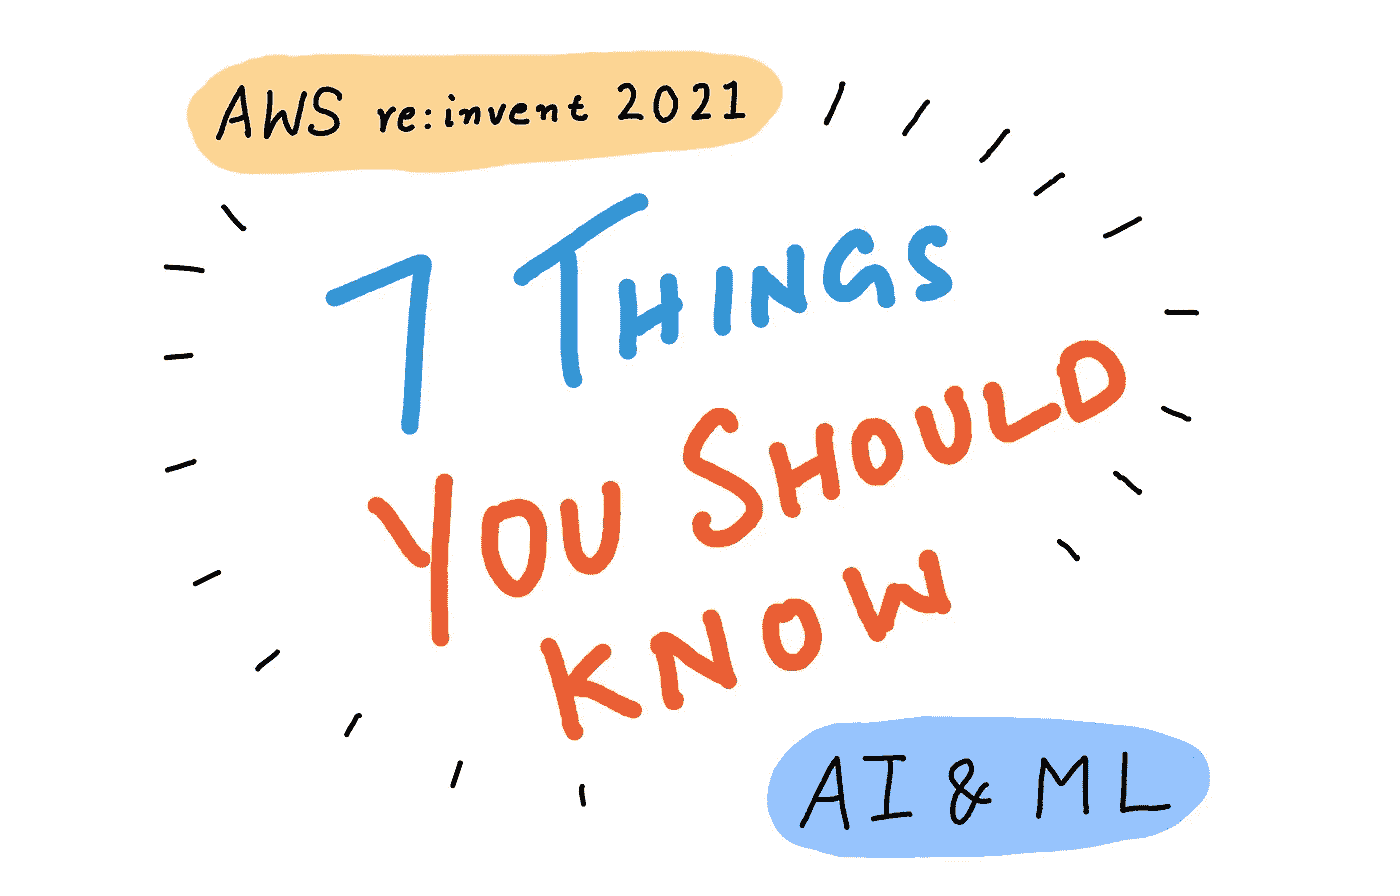 AWS re:invent 2021
7 THINGS
YOU SHOULD
KNOW
AI & ML